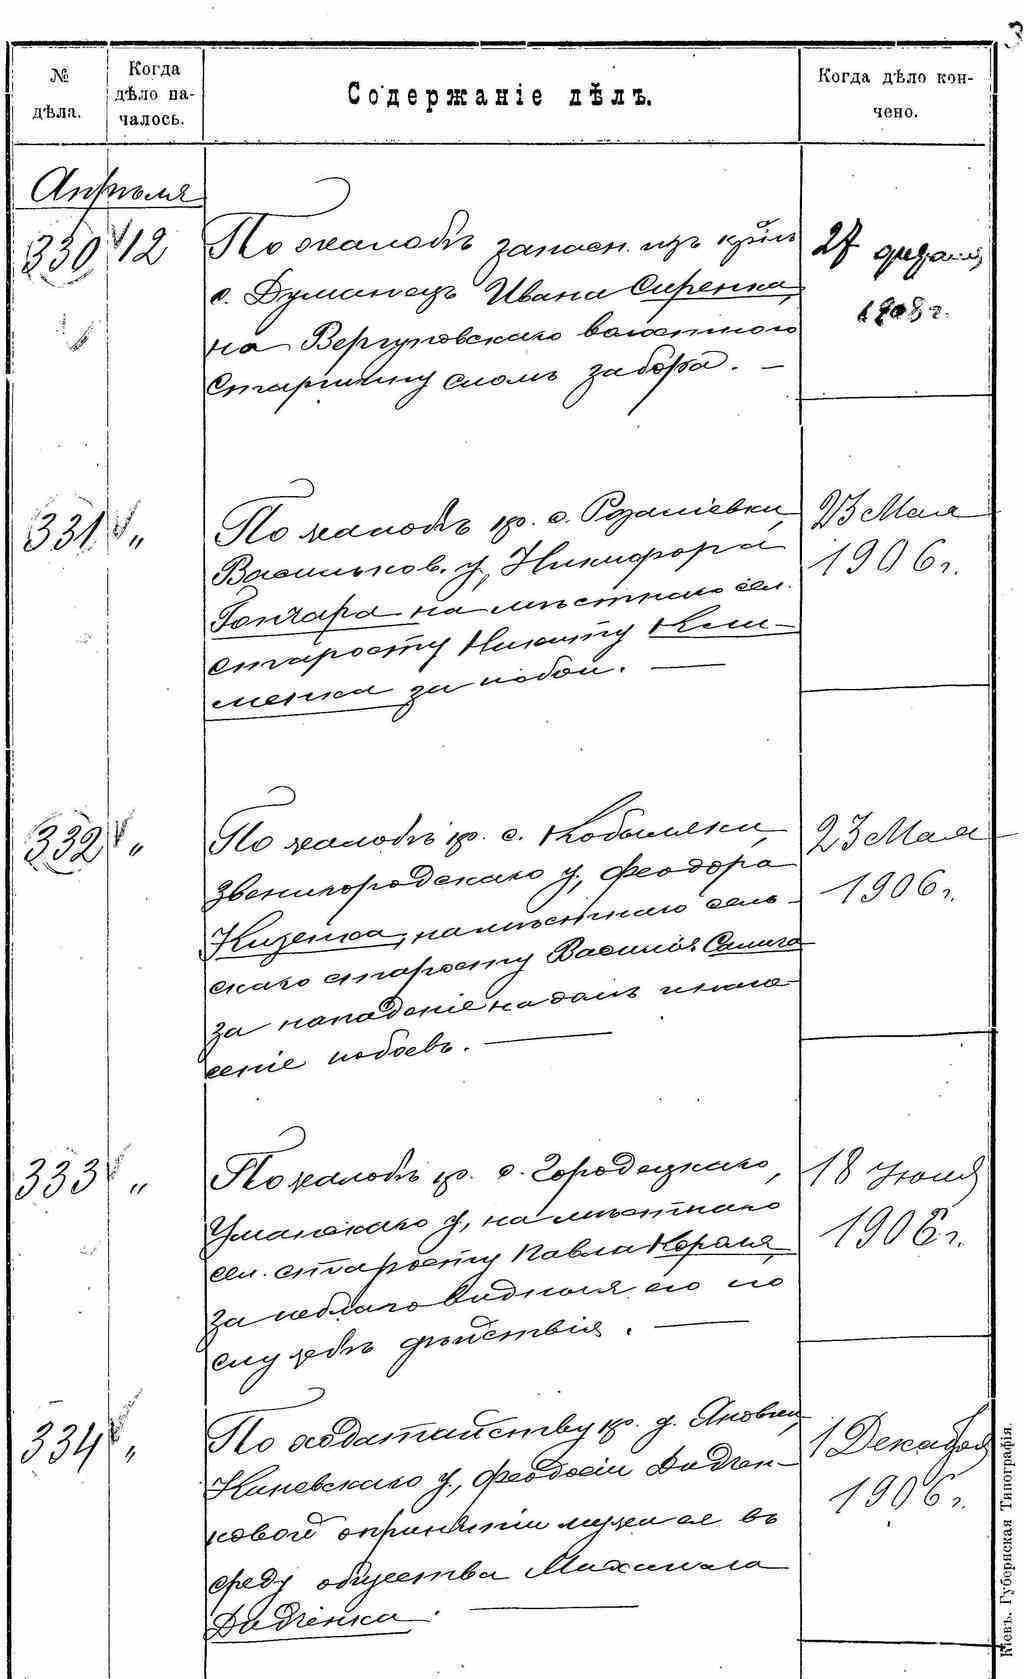 3
№ дѣла.
Когда дѣло на-
чалось.
Содержаніе дѣлъ.
Когда дѣло кон-
чено.
Апрѣля
330 12
По жалобѣ запасн. изъ
с. Думанецъ Ивана Сиренка,
на Вергуновскаго волостного
Старшину сломъ забора. —
27 февраля
1908 г.
331 „
По жалобѣ кр. с. Розаліевки,
Васильков. у., Никифора
Гончара на мѣстнаго сел.
старосту Никиту Кли-
менка за побои. —
23 Мая
1906 г.
332 „
По жалобѣ кр. с. Кобыляки,
Звенигородскаго у., Феодора
Кизенка, на мѣстнаго сель-
скаго старосту Василія
за нападеніе на домъ и нане-
сеніе побоевъ. —
23 Мая
1906 г.
333 „
По жалобѣ кр. с. Городецкаго,
Уманскаго у., на мѣстнаго
сел. старосту Павла Короля,
за неблаговидныя его по
службѣ дѣйствія. —
18 Іюня
1906 г.
334 „
По ходатайству кр. д. Яновки,
Каневскаго у., Феодосіи Дидчен-
ковой о принятіи мужа ея въ
среду общества Михаила
Дидченка. —
1 Декабря
1906 г.
Кіевъ. Губернская Типографія.